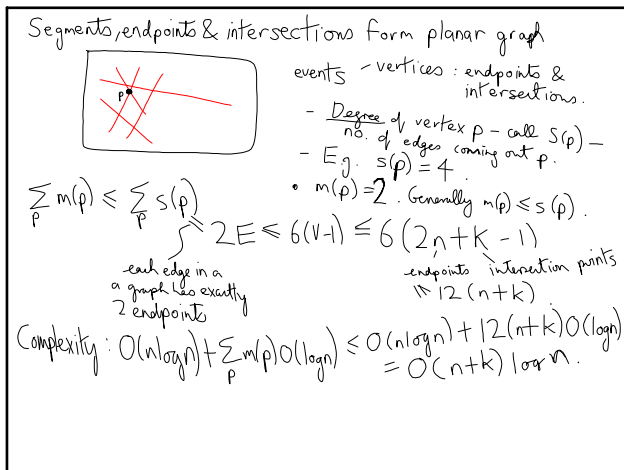 Segments, endpoints & intersections form planar graph
p
events - vertices : endpoints &
intersections.
- Degree of vertex p - call S(p) -
no. of edges coming out p.
- E.g. s(p) = 4.
• m(p) = 2. Generally m(p) ≤ s(p).
∑_p m(p) ≤ ∑_p s(p)
≤ 2E ≤ 6(V-1) ≤ 6(2n+k-1)
each edge in a
a graph has exactly
2 endpoints
endpoints intersection points
≤ 12(n+k)
Complexity : O(nlogn) + ∑_p m(p) O(logn) ≤ O(nlogn) + 12(n+k) O(logn)
= O(n+k) log n.